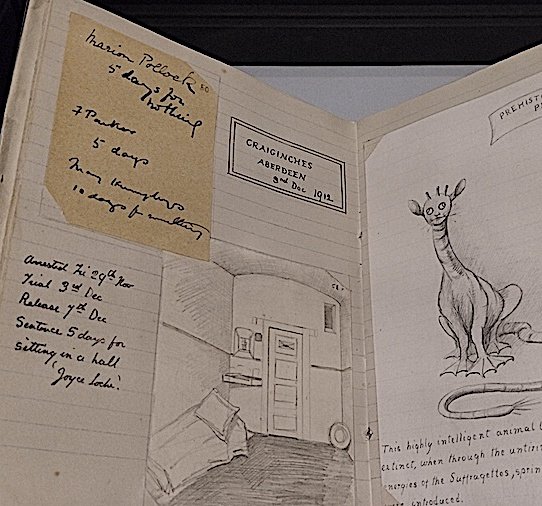 Marion Pollock
5 days for
nothing
F Parker
5 days
Mary Humphrys
10 days for nothing
CRAIGINCHES
ABERDEEN
3rd Dec 1912
Arrested Fri 29th Nov
Trial 3rd Dec
Release 7th Dec
Sentence 5 days for
sitting in a hall
'Joyce Locke'.
PREHISTO
P
This highly intelligent animal
extinct, when through the untiri
energies of the Suffragettes, sprin
were introduced.